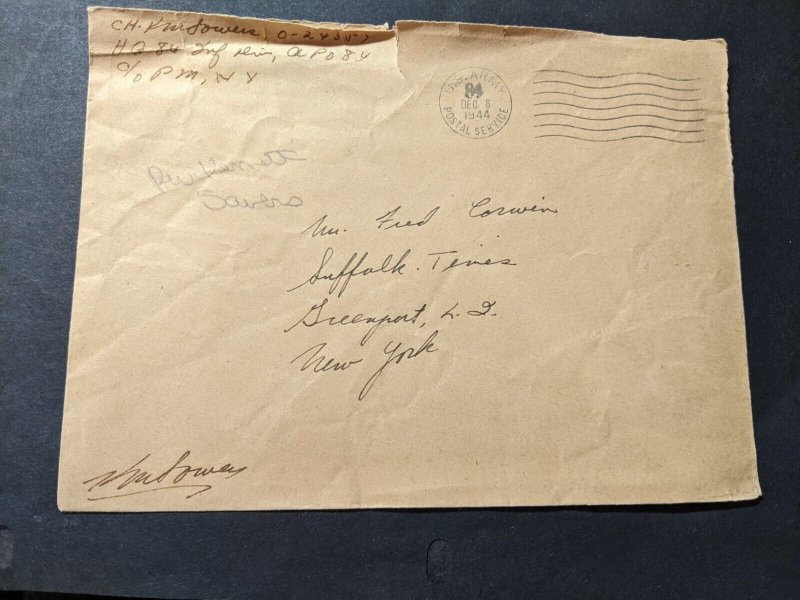 CH. KM Sowers, O-24357
HQ 84 Inf Div, APO 84
c/o P M, N Y
U.S. ARMY
84
DEC 8
1944
POSTAL SERVICE
Rev.
Sowers
Mr. Fred Corwin
Suffolk Times
Greenport, L. I.
New York
KM Sowers